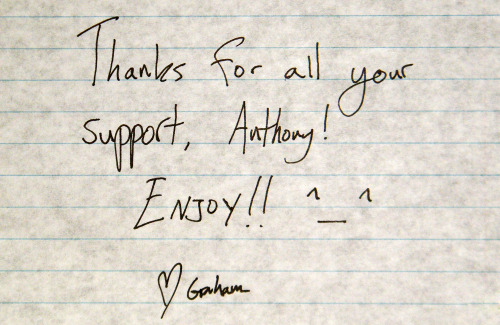 Thanks for all your
support, Anthony!
ENJOY!! ^_^
♡ Graham